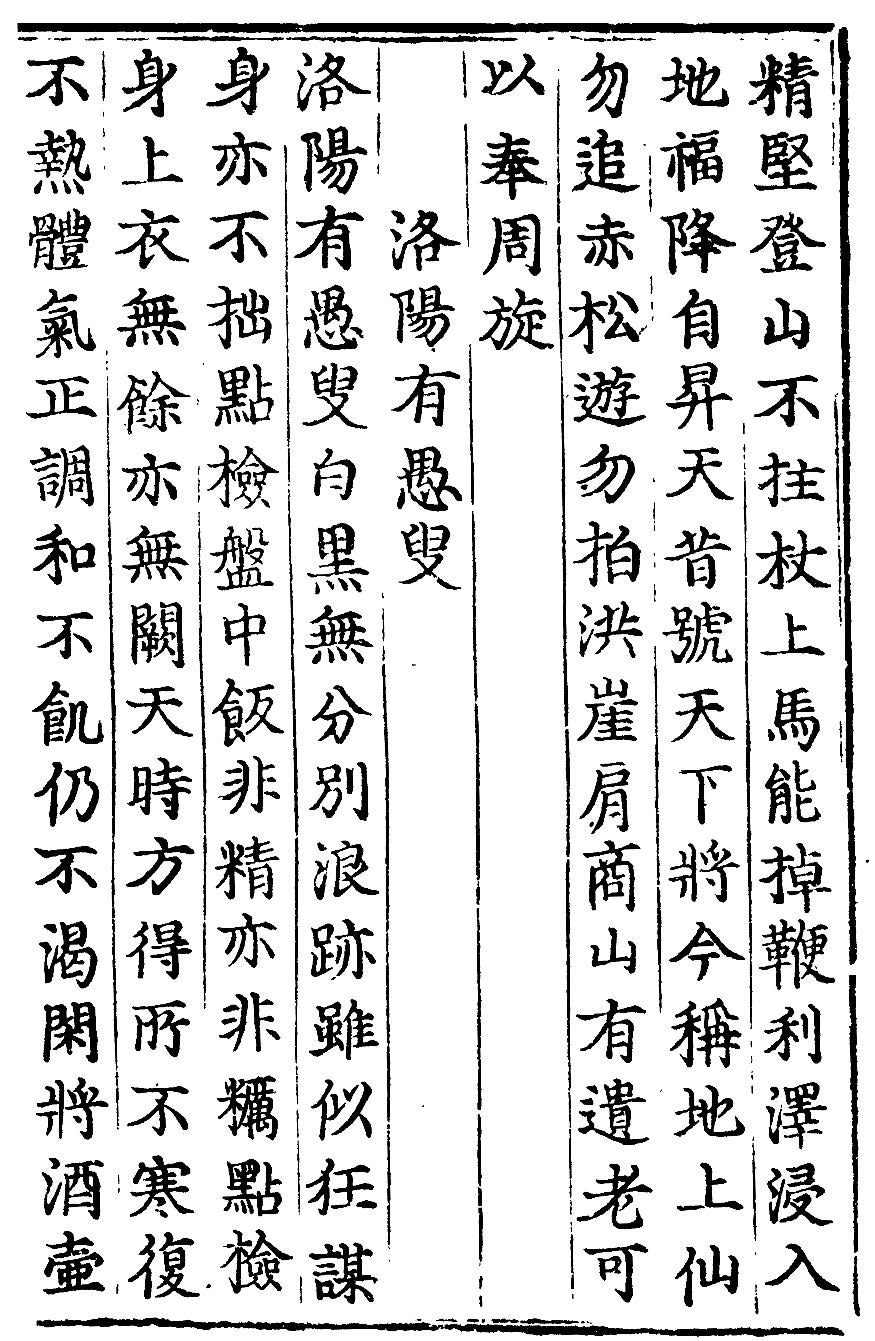 精堅登山不拄杖上馬能掉鞭利澤浸入
地福降自昇天昔號天下將今稱地上仙
勿追赤松遊勿拍洪崖肩商山有遺老可
以奉周旋
洛陽有愚叟
洛陽有愚叟白黒無分別浪跡雖似狂謀
身亦不拙點檢盤中飯非精亦非糲點檢
身上衣無餘亦無闕天時方得所不寒復
不熱體氣正調和不飢仍不渴閑將酒壷